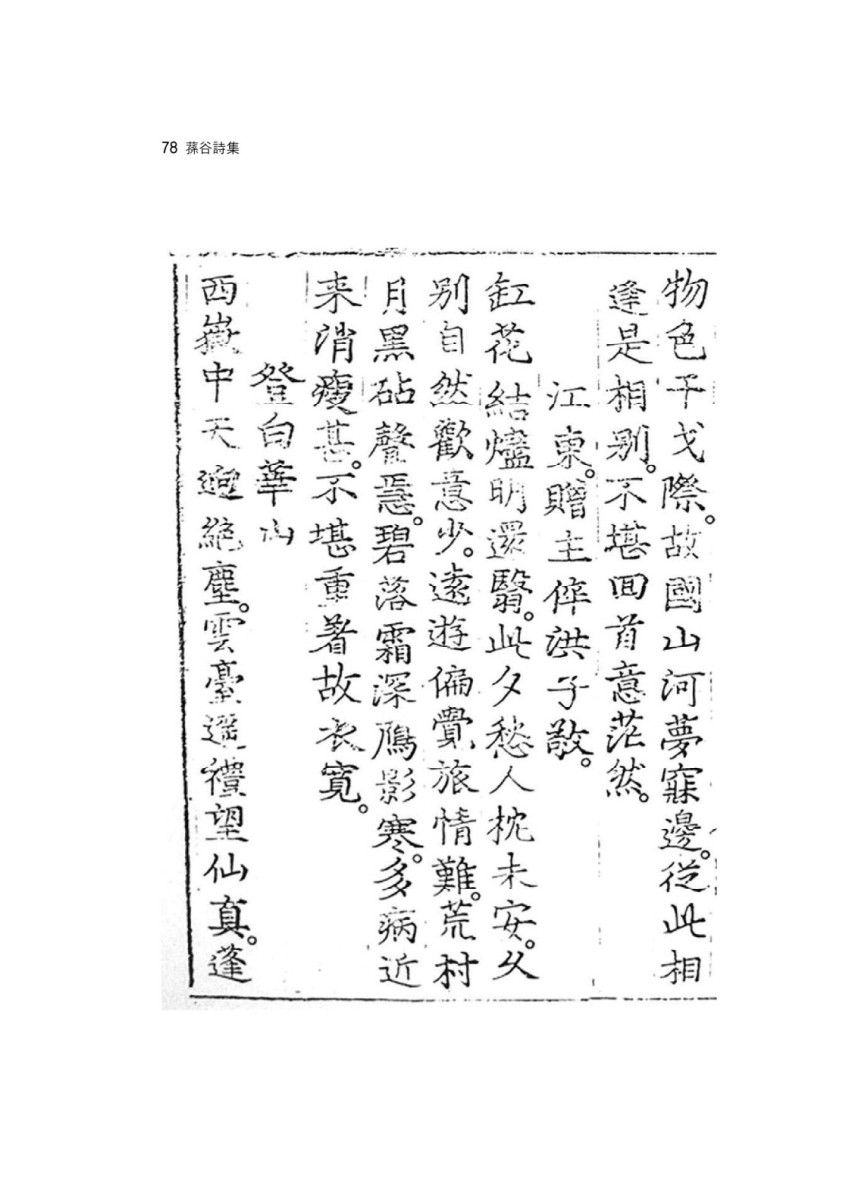 78 蓀谷詩集
物色干戈際。故國山河夢寐邊。從此相
逢是相別。不堪回首意茫然。
江東。贈主倅洪子敬。
缸花結燼明還翳。此夕愁人枕未安。久
別自然歡意少。遠遊偏覺旅情難。荒村
月黑砧聲急。碧落霜深鴈影寒。多病近
来消瘦甚。不堪重着故衣寬。
登白華山
西嶽中天迥絶塵。雲臺遥禮望仙真。蓬